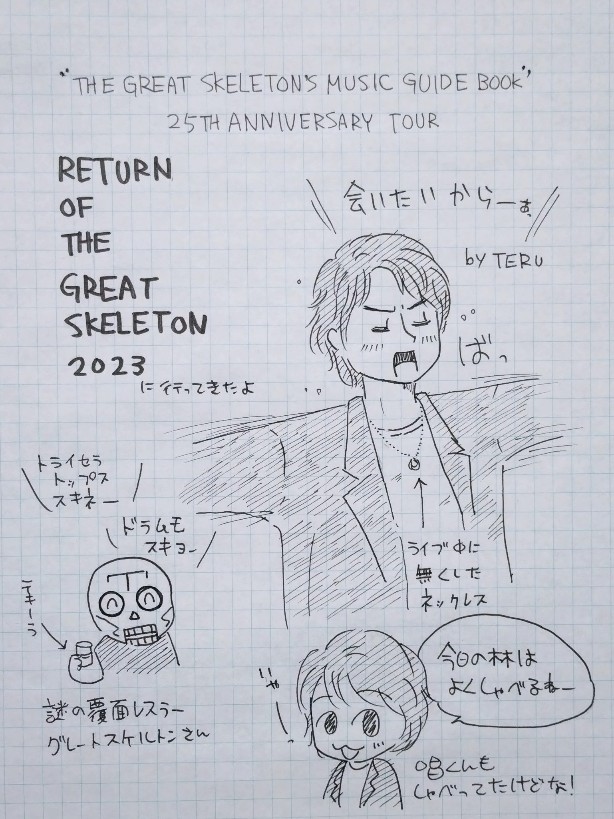 "THE GREAT SKELETON'S MUSIC GUIDE BOOK"
25TH ANNIVERSARY TOUR
RETURN
OF
THE
GREAT
SKELETON
2023
に行ってきたよ
会いたいからーぁ
by TERU
ばっ
トライセラ
トップス
スキネー
ドラムモ
スキョー
テキーラ
謎の覆面レスラー
グレートスケルトンさん
ライブ中に
無くした
ネックレス
今日の林は
よくしゃべるねー
じゃ
唱くんも
しゃべってたけどな!